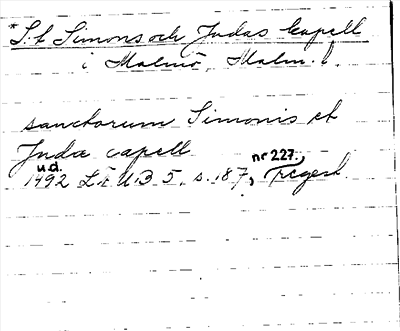 *S:t Simons och Judas kapell
i Malmö, Malm. l.
sanctorum Simonis et
Jude capell
u.d. nr 227.
1492 LÄUB 5, s. 187, regest.